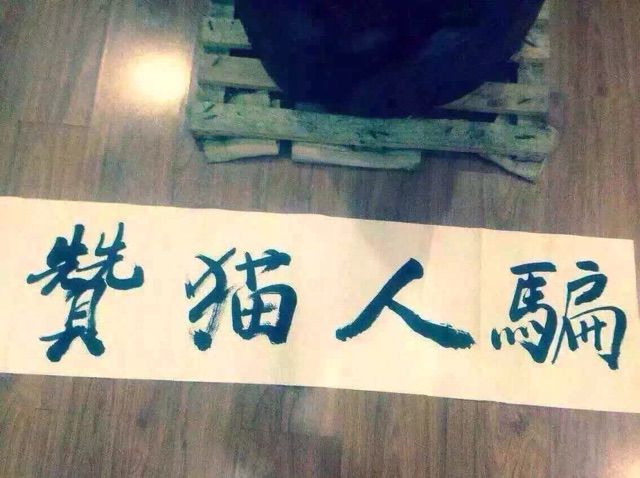 騙人猫贊